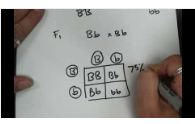 BB bb
F₁ Bb x Bb
B b
B BB Bb 75%
b Bb bb